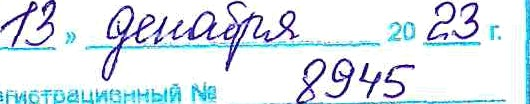 13 » декабря 2023 г.
гистрационный № 8945